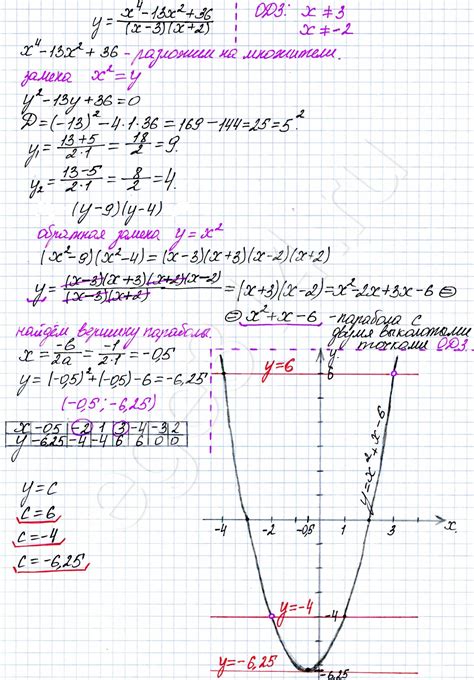 y = (x⁴-13x²+36)/((x-3)(x+2)) ОДЗ: x ≠ 3
x ≠ -2
x⁴-13x²+36 - разложим на множители.
замена x²=y
y²-13y+36=0
D=(-13)²-4·1·36=169-144=25=5²
y₁=(13+5)/(2·1)=18/2=9.
y₂=(13-5)/(2·1)=8/2=4.
(y-9)(y-4)
обратная замена y=x²
(x²-9)(x²-4)=(x-3)(x+3)(x-2)(x+2)
y=((x-3)(x+3)(x+2)(x-2))/((x-3)(x+2))=(x+3)(x-2)=x²-2x+3x-6 ⊜
⊜ x²+x-6 - парабола с
двумя выколотыми
точками ОДЗ.
найдём вершину параболы.
x=-в/2a=-1/2·1=-0,5
y=(-0,5)²+(-0,5)-6=-6,25
(-0,5; -6,25)
x -0,5 -2 1 3 -4 -3 2
y -6,25 -4 -4 6 6 0 0
y=c
c=6
c=-4
c=-6,25
y
y=6
6
y=x²+x-6
-4 -2 -0,5 1 3 x
y=-4
-4
y=-6,25
-6,25